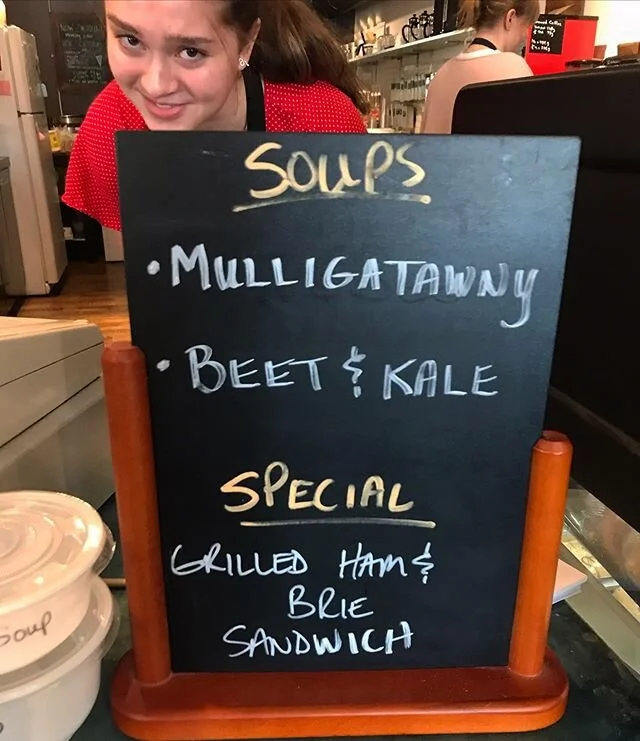 SOUPS
• MULLIGATAWNY
• BEET & KALE
SPECIAL
GRILLED HAM &
BRIE
SANDWICH
Soup